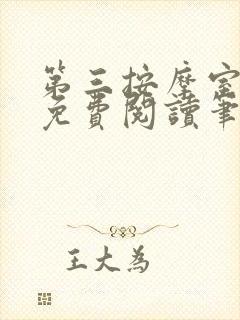 第三按摩室
免費閱讀筆
王大為